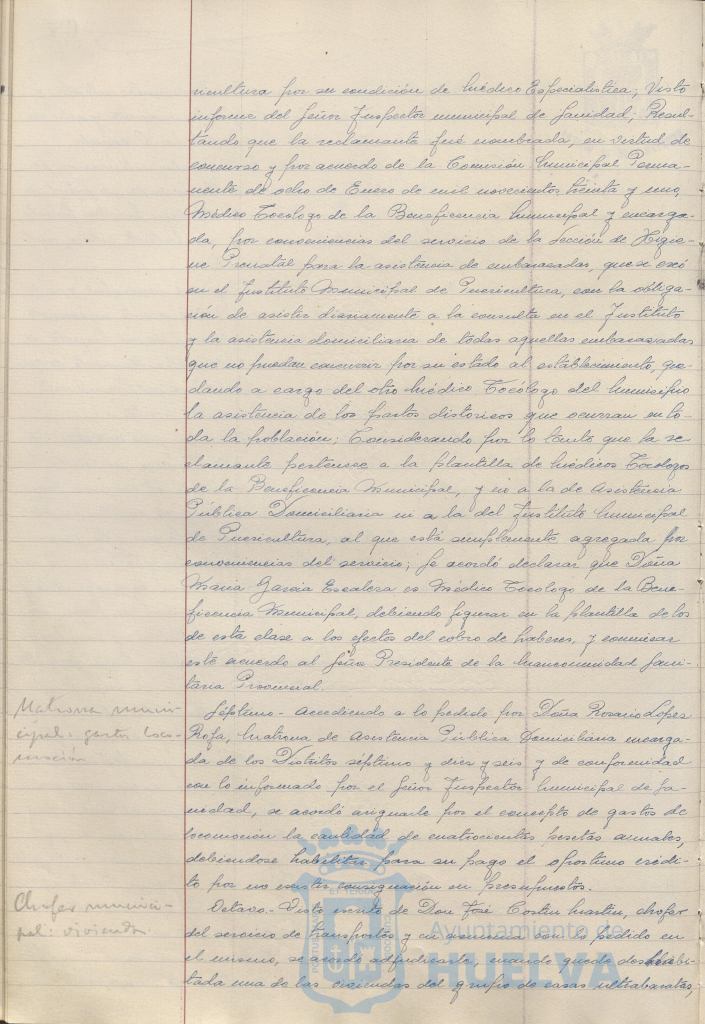 ricultura por su condición de Médico Especialistica; Visto
informe del Señor Inspector municipal de Sanidad; Resul-
tando que la reclamante fué nombrada, en virtud de
concurso y por acuerdo de la Comisión Municipal Perma-
nente de ocho de Enero de mil novecientos treinta y uno,
Médico Tocólogo de la Beneficencia Municipal y encarga-
da, por conveniencias del servicio de la Sección de Higie-
ne Prenatal para la asistencia de embarasadas, que se creó
en el Instituto Municipal de Puericultura, con la obliga-
ción de asistir diariamente a la consulta en el Instituto
y la asistencia domiciliaria de todas aquellas embarasadas
que no puedan concurrir por su estado al establecimiento, que-
dando a cargo del otro Médico Tocólogo del Municipio
la asistencia de los partos distocicos que ocurran en to-
da la población; Considerando por lo tanto que la re-
clamante pertenece a la plantilla de Médicos Tocologos
de la Beneficencia Municipal, y no a la de Asistencia
Pública Domiciliaria ni a la del Instituto Municipal
de Puericultura, al que está simplemente agregada por
conveniencias del servicio; Se acordó declarar que Doña
Maria Garcia Escalera es Médico Tocologo de la Bene-
ficencia Municipal, debiendo figurar en la plantilla de los
de esta clase a los efectos del cobro de haberes, y comunicar
este acuerdo al Señor Presidente de la Mancomunidad Sani-
taria Provincial.
Matrona muni-
cipal: gastos loco-
moción
Séptimo - Accediendo a lo pedido por Doña Rosario Lopez
Rofa, Matrona de Asistencia Pública Domiciliaria encarga-
da de los Distritos séptimo y diez y seis y de conformidad
con lo informado por el Señor Inspector Municipal de Sa-
nidad, se acordó asignarle por el concepto de gastos de
locomoción la cantidad de cuatrocientas pesetas anuales,
debiendose habilitar para su pago el oportuno crédi-
to por no existir consignación en Presupuestos.
Chofer munici-
pal: vivienda.
Octavo - Visto escrito de Don José Martin, chofer
del servicio de transportes y en armonia con lo pedido en
el mismo, se acordó adjudicarle, cuando quede deshabi-
tada una de las viviendas del grupo de casas ultrabaratas,
Ayuntamiento de
HUELVA